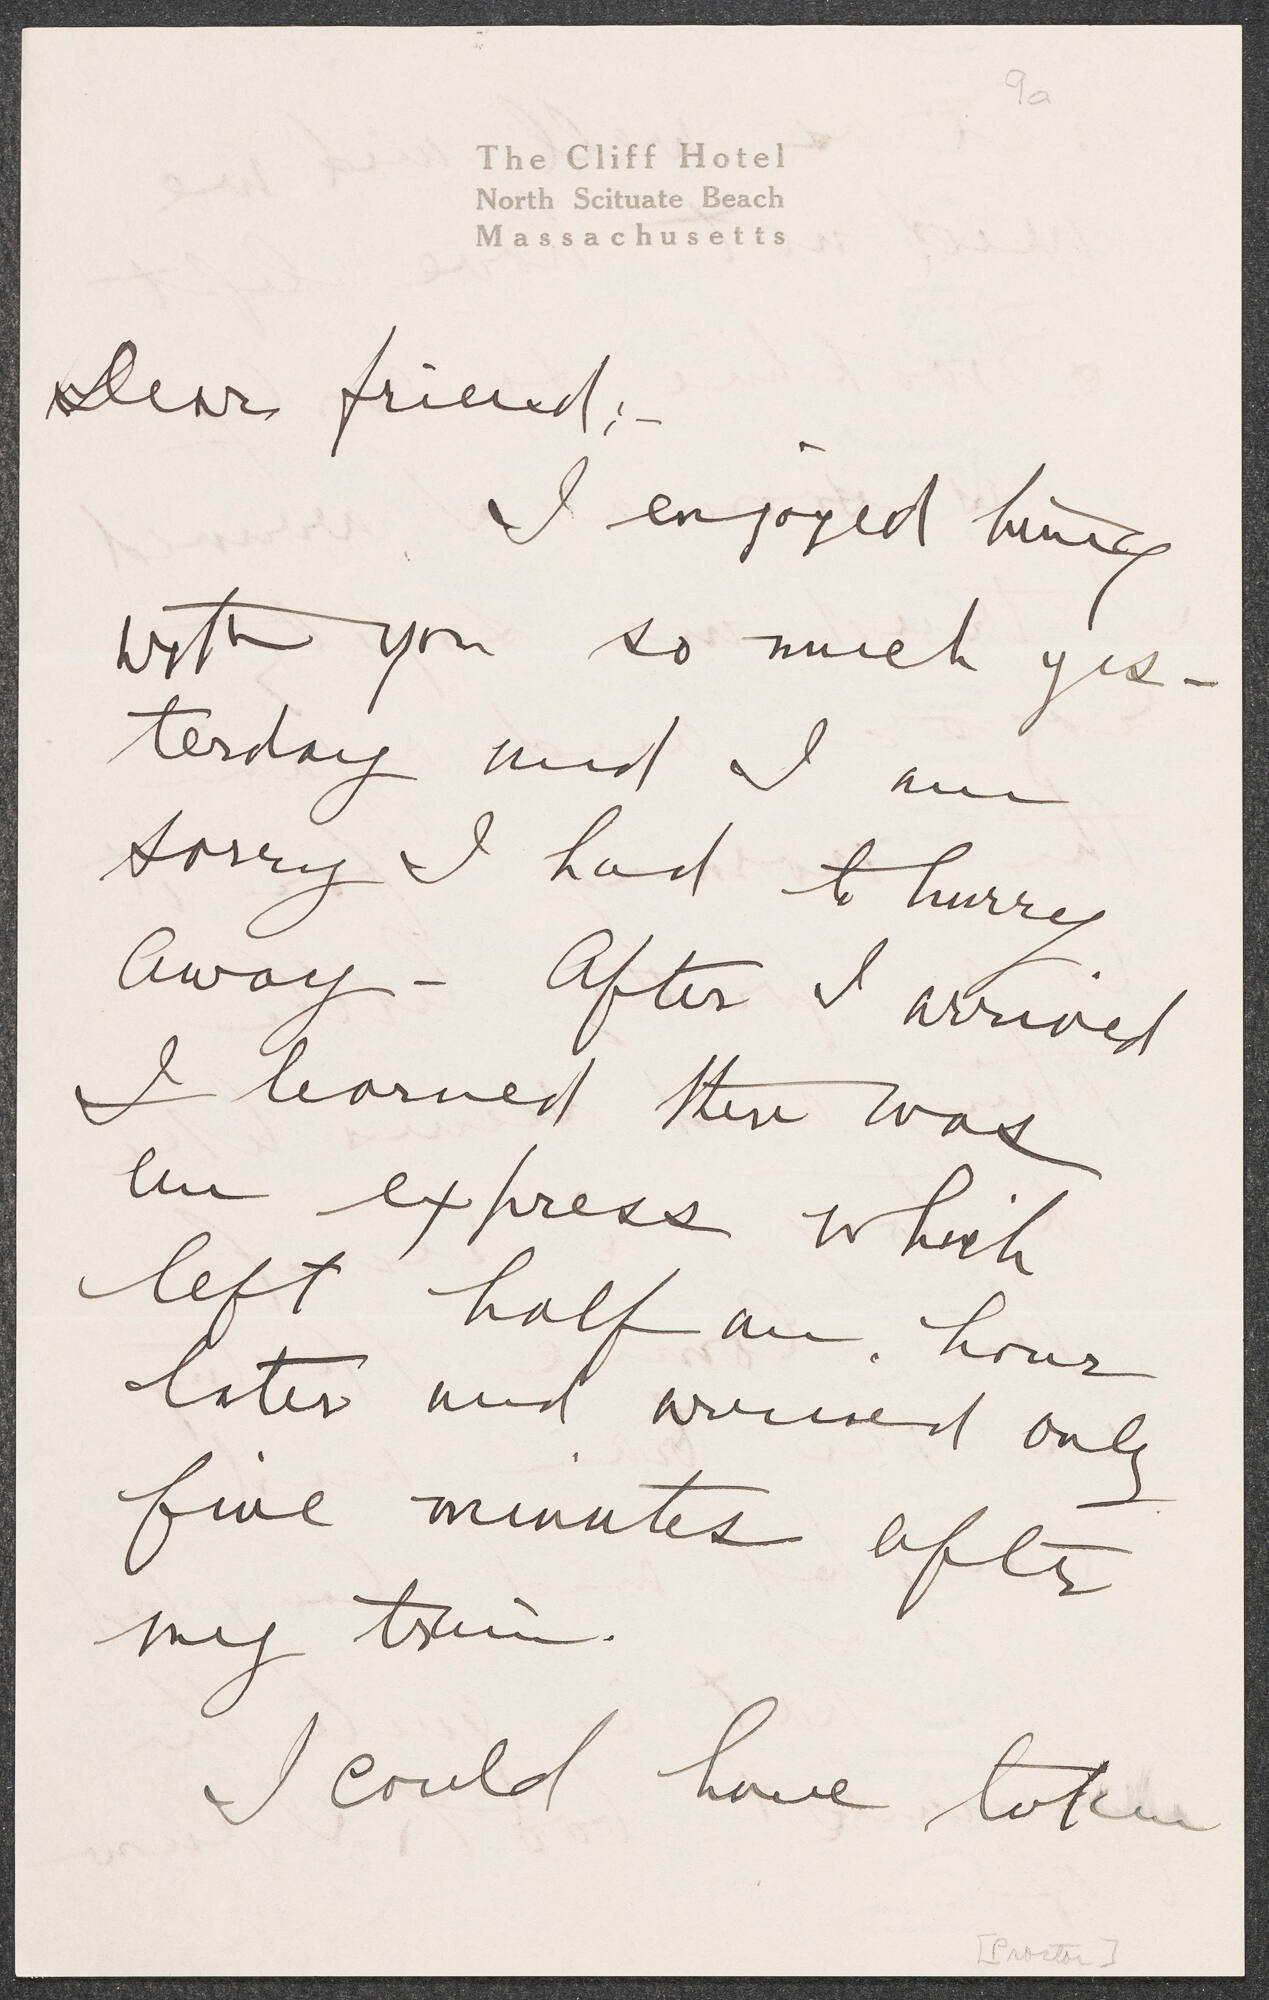 9a
The Cliff Hotel
North Scituate Beach
Massachusetts
Dear friend;-
I enjoyed being
with you so much yes-
terday and I am
sorry I had to hurry
away - After I arrived
I learned there was
an express which
left half an hour
later and arrived only
five minutes after
my train.
I could have taken
[Proctor]